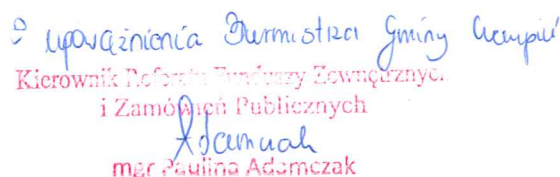 z upoważnienia Burmistrza Gminy Czempiń
Kierownik Referatu Funduszy Zewnętrznych
i Zamówień Publicznych
Adamczak
mgr Paulina Adamczak